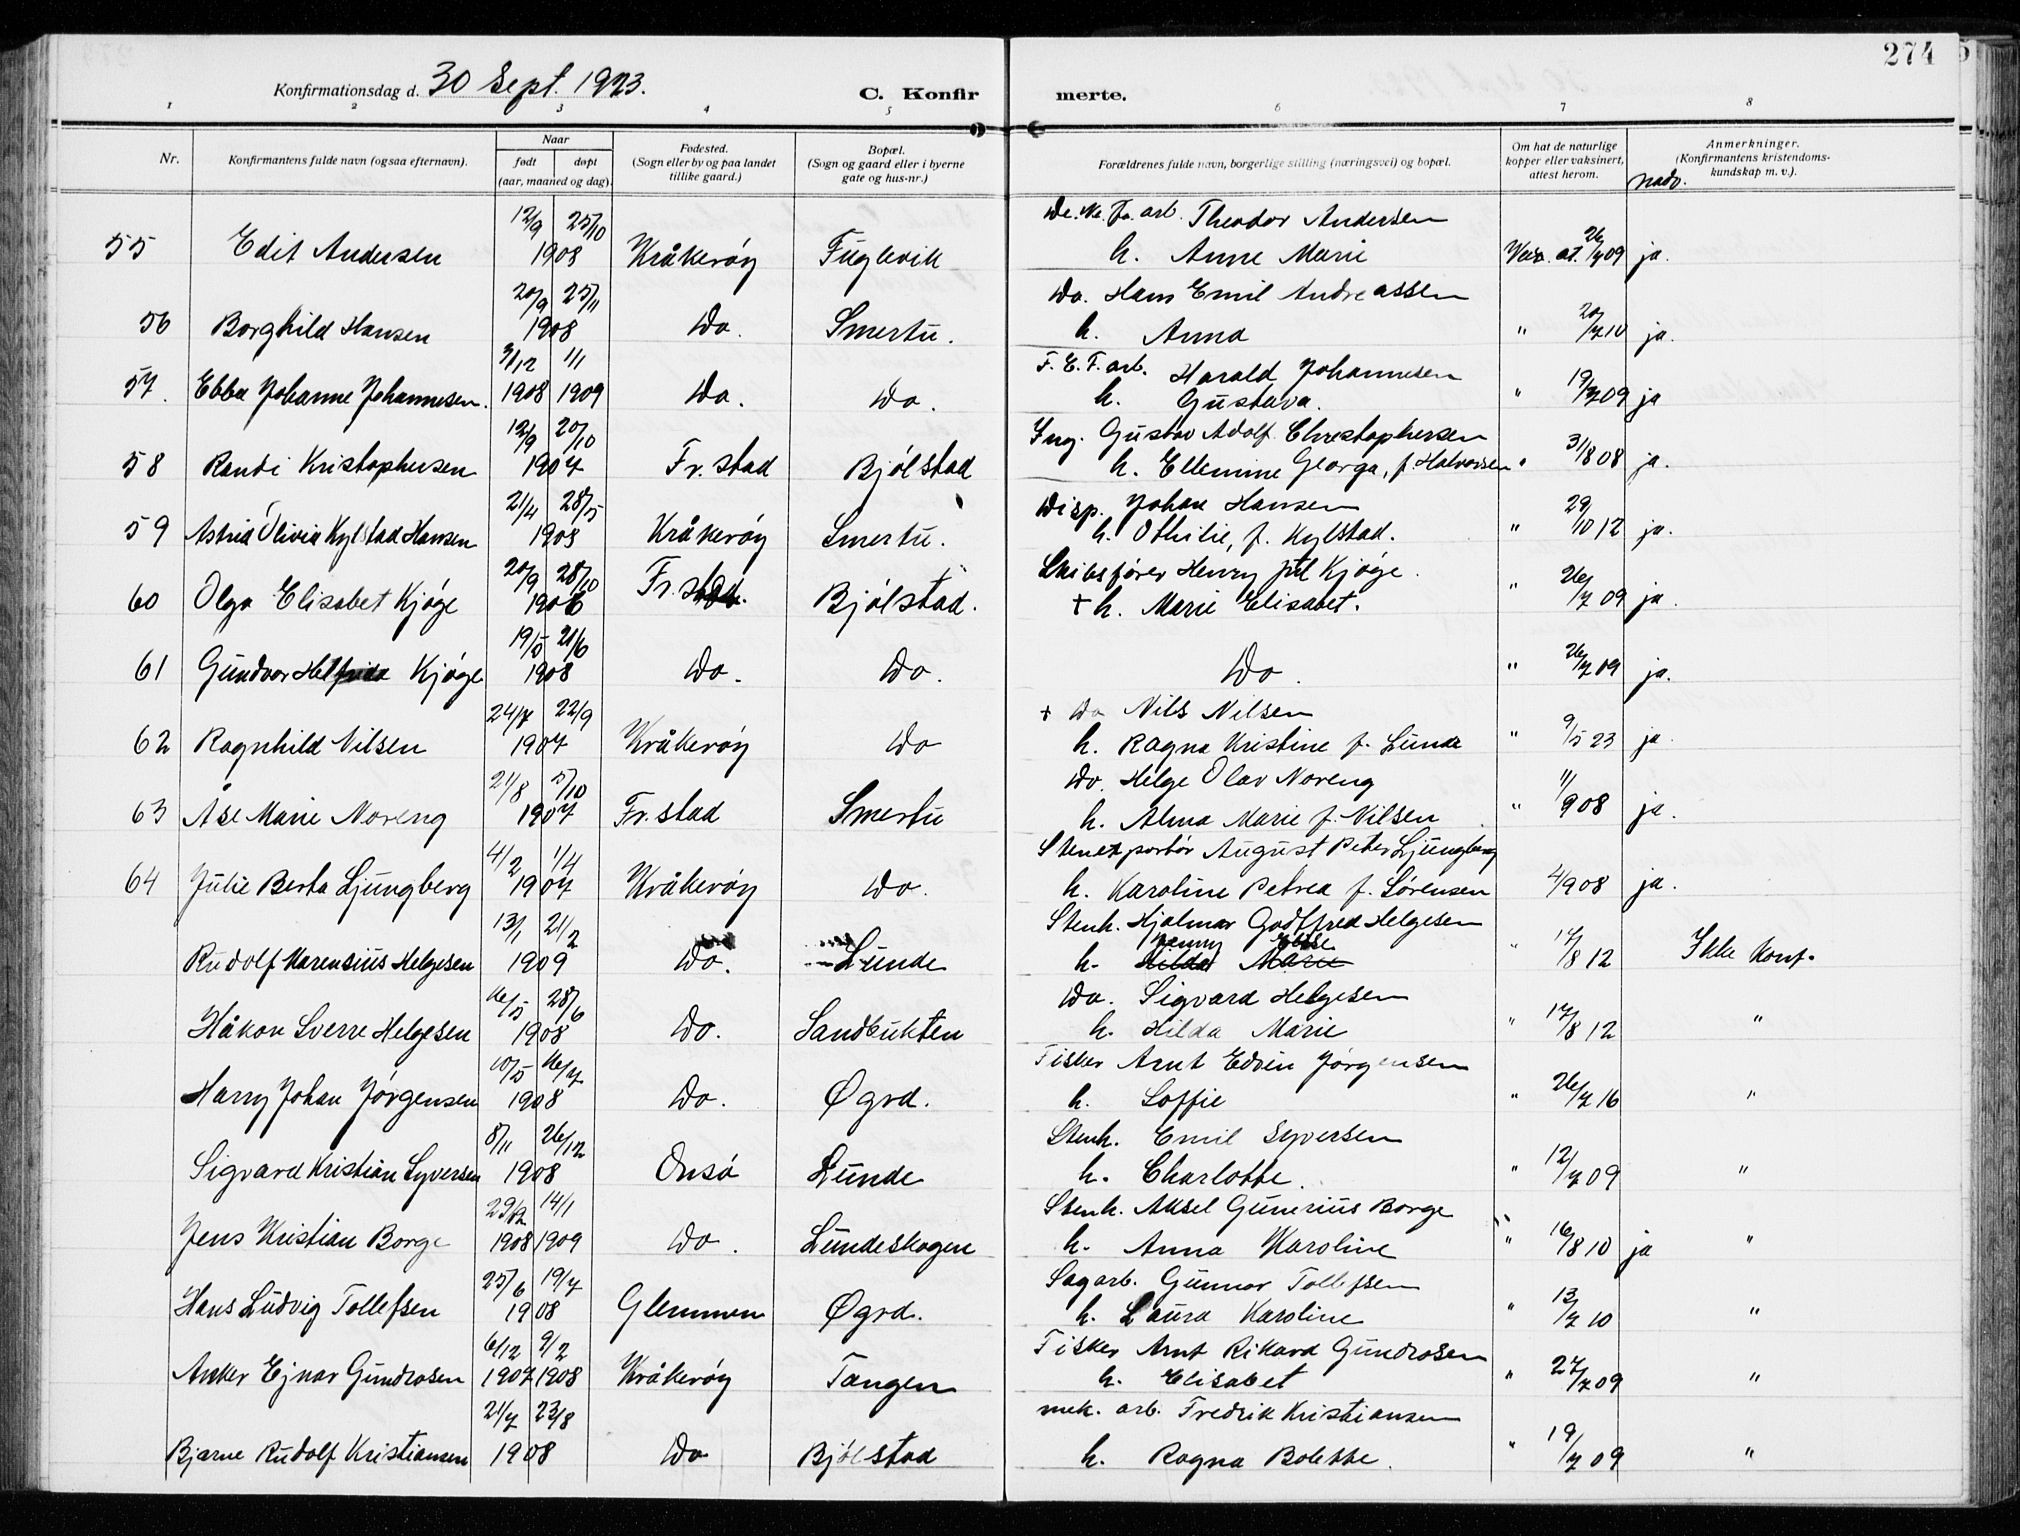 274
Konfirmationsdag d. 30 Sept. 1923.
C. Konfirmerte.
1 2 3 4 5 6 7 8
Nr.
Konfirmantens fulde navn (ogsaa efternavn).
Naar
født døpt
(aar, maaned og dag).
Fødested.
(Sogn eller by og paa landet
tillike gaard.)
Bopæl.
(Sogn og gaard eller i byerne
gate og hus-nr.)
Forældrenes fulde navn, borgerlige stilling (næringsvei) og bopæl.
Om hat de naturlige
kopper eller vaksinert,
attest herom.
Anmerkninger.
(Konfirmantens kristendoms-
kundskap m. v.).
nadv.
12/9 25/10 arb. Theodor Andersen
55 Edit Andersen 1908 Kråkerøy Fuglevik h. Anne Marie Vax. at. 26/7 09 ja.
20/9 25/11 Do. Hans Emil Andreassen
56 Borghild Hansen 1908 Do. Smertu. h. Anna " 20/7 10 ja.
3/12 1/1 F. E. F. arb. Harald Johannesen
57. Ebba Johanne Johannesen. 1908 1909 Do. Do. h. Gustava. " 19/7 09 ja
12/9 20/10 Ing. Gustav Adolf Christophersen
58 Randi Kristophersen 1907 Fr. stad Bjölstad h. Ellemine Georga, f. Halvorsen " 31/8 08 ja.
21/4 28/5 Disp. Johan Hansen
59 Astrid Olivia Kylstad Hansen 1908 Kråkeröy Smertu. h. Othilie, f. Kylstad. " 29/10 12 ja.
20/9 28/10 Skibsförer Henry Kjöge.
60 Olga Elisabet Kjöge 1906 Fr. stad. Bjölstad. + h. Marie Elisabet. " 26/7 09 ja.
19/5 21/6
61 Gundvor Helfrida Kjöge 1908 Do. Do. Do. " 26/7 09 ja.
24/7 22/9 + Do Nils Nilsen
62 Ragnhild Nilsen 1907 Kråkeröy Do h. Ragna Kristine f. Lunde " 9/5 23 ja.
21/8 5/10 Do. Helge Olav Noreng
63 Åse Marie Noreng 1907 Fr. stad Smertu h. Alma Marie f. Nilsen " 11/9 08 ja.
4/2 1/4 Stenexportör August Peter Ljungberg
64 Julie Berta Ljungberg 1907 Kråkeröy Do. h. Karoline Petrea f. Sörensen 4/9 08 ja.
13/1 21/2 Stenh. Hjalmar Godtfred Helgesen
Jenny
Rudolf Karensius Helgesen 1909 Do. Lunde h. Hilda Marie " 17/8 12 Ikke konf.
16/5 28/6 Do. Sigvard Helgesen
Håkon Sverre Helgesen 1908 Do. Sandbukten h. Hilda Marie " 17/8 12 "
10/5 16/7 Fisker Arnt Edvin Jörgensen
Harry Johan Jörgensen 1908 Do. Øgrd. h. Soffie " 26/7 16 "
8/11 26/12 Stenh. Emil Syversen
Sigvard Kristian Syversen 1908 Onsö Lunde h. Charlotte. " 12/7 09 "
29/12 14/1 Stenh. Aksel Gunerius Borge
Jens Kristian Borge 1908 1909 Do. Lundeskogen h. Anna Karoline " 16/8 10 ja "
25/6 19/7 Sagarb. Gunnar Tollefsen
Hans Ludvig Tollefsen 1908 Glemmen Øgrd. h. Laura Karoline " 13/7 10 "
6/12 9/2 Fisker Arnt Rikard Gundrosen
Anker Ejnar Gundrosen 1907 1908 Kråkeröy Tangen h. Elisabet " 27/7 09 "
21/7 23/8 mek. arb. Fredrik Kristiansen
Bjarne Rudolf Kristiansen 1908 Do Bjölstad h. Ragna Bolette. " 19/7 09 "